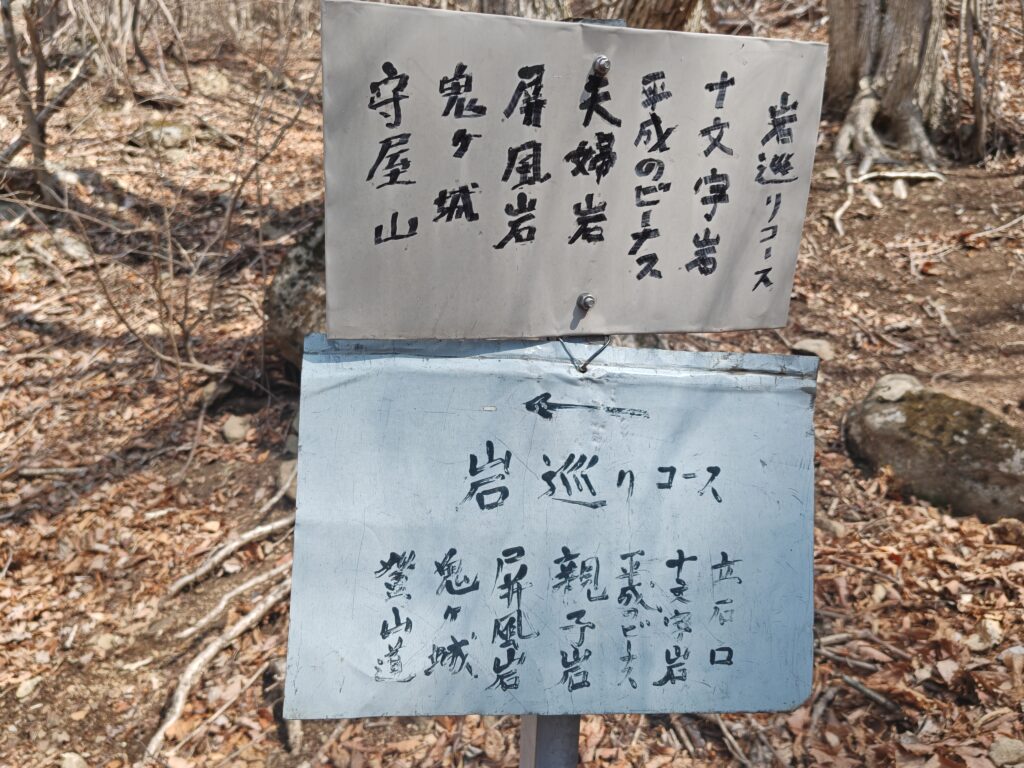 岩巡りコース
十文字岩
平成のビーナス
夫婦岩
屏風岩
鬼ヶ城
守屋山
←
岩巡りコース
立石口
十文字岩
平成のビーナス
親子岩
屏風岩
鬼ヶ城
登山道